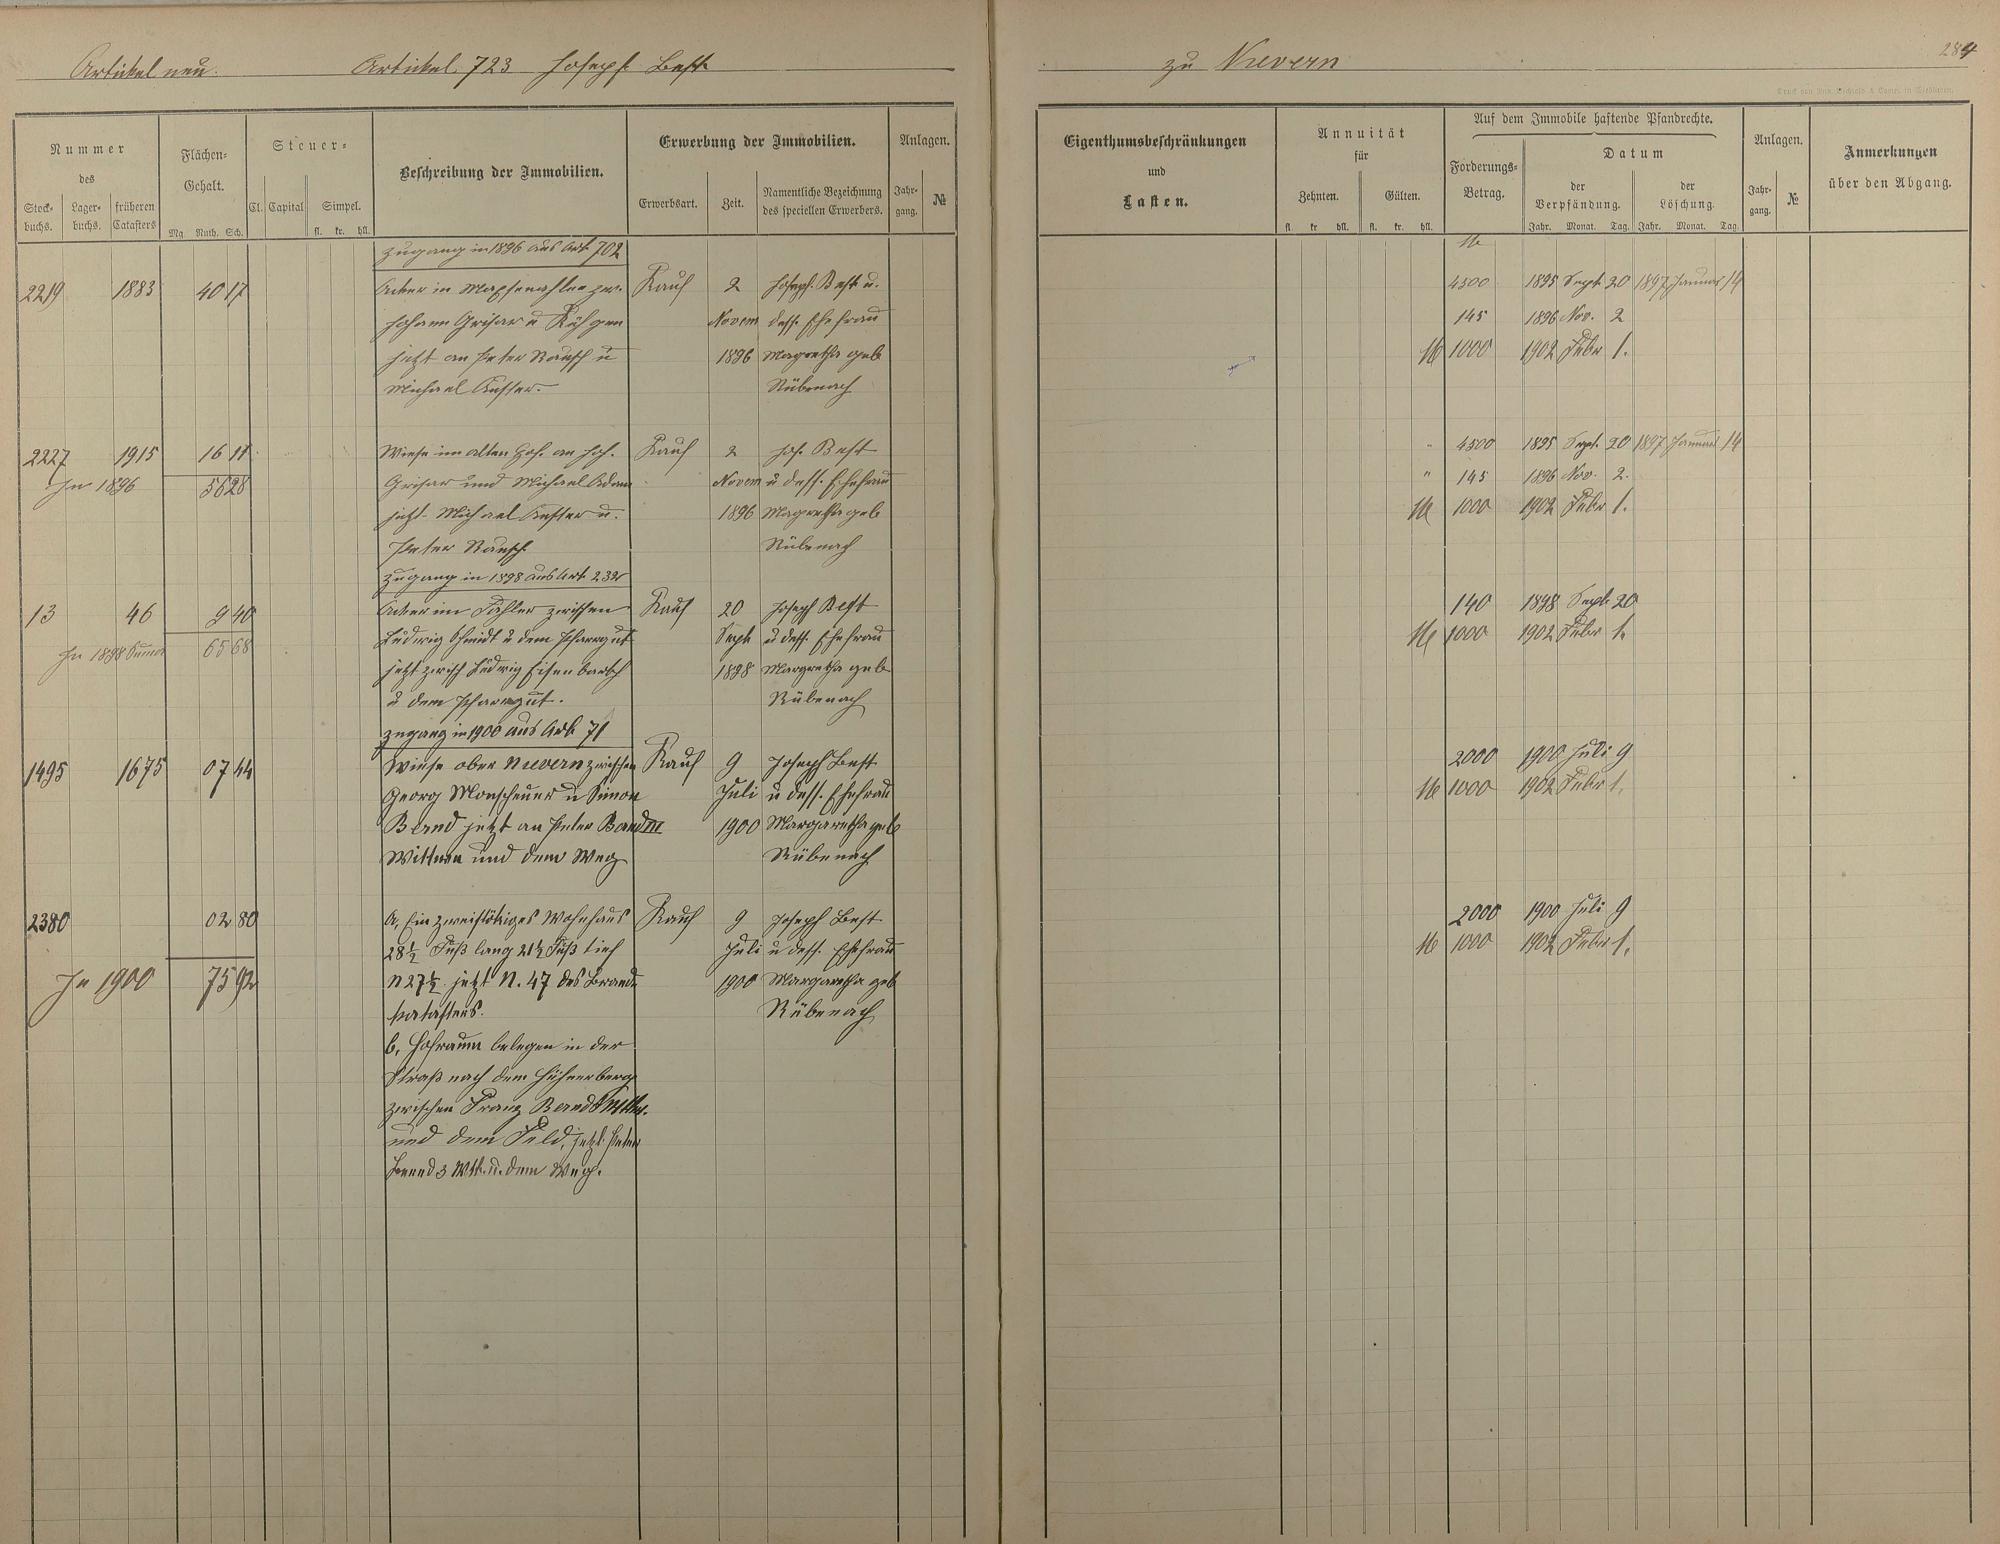 Artikel neu. Artikel 723 Joseph Best zu Nievern 284
Nummer
des
Stockbuchs. Lagerbuchs. früheren Catasters
Flächen-Gehalt.
Mg. Ruth. Sch.
Steuer-
Cl. Capital Simpel.
fl. kr. hll.
Beschreibung der Immobilien.
Erwerbung der Immobilien.
Erwerbsart. Zeit. Namentliche Bezeichnung des speciellen Erwerbers.
Anlagen.
Jahrgang. №
Eigenthumsbeschränkungen
und
Lasten.
Annuität
für
Zehnten. Gülten.
fl. kr. hll. fl. kr. hll.
Auf dem Immobile haftende Pfandrechte.
Forderungs-Betrag.
Datum
der Verpfändung. der Löschung.
Jahr. Monat. Tag. Jahr. Monat. Tag.
Anlagen.
Jahrgang. №
Anmerkungen
über den Abgang.
Zugang in 1896 aus Art 702 M
2219 1883 40 17 Acker in zw. Kauf 2 Joseph Best u. 4500 1895 Sept 20 1897 Januar 14
Johann Grisar u Novem dess. Ehefrau 145 1896 Nov. 2
jetzt an Peter Rausch u 1896 Magretha geb M 1000 1902 Febr 1.
Michael Kuster. Rübenach
2227 1915 16 11 Wiese im alten an Joh. Kauf 2 Jos. Best " 4500 1895 Sept. 20 1897 Januar 14
In 1896 56 28 Grisar und Michael Adam Novem u dess. Ehefrau " 145 1896 Nov. 2.
jetzt Michael Kuster u. 1896 Magretha geb M 1000 1902 Febr 1.
Peter Rausch Rübenach
Zugang in 1898 aus Art 232
13 46 9 40 Acker im zwischen Kauf 20 Joseph Best 140 1898 Sept 20
Ludwig Schmidt u dem Pfarrgut Sept u dess. Ehefrau M 1000 1902 Febr 1.
In 1898 Suma 65 68
jetzt zwisch Ludwig Eisenbarth 1898 Margretha geb
u dem Pfarrgut. Rübenach
Zugang in 1900 aus Art 71
1495 1675 07 44 Wiese ober Nievern zwischen Kauf 9 Joseph Best 2000 1900 Juli 9
Georg Monscheuer u Simon Juli u dess. Ehefrau M 1000 1902 Febr 1.
Bernd jetzt an Peter Bernd III 1900 Margaretha geb
Wittwe und dem Weg Rübenach
2380 02 80 a, Ein zweistökiges Wohnhaus Kauf 9 Joseph Best 2000 1900 Juli 9
28½ Fuß lang 21½ Fuß tief Juli u dess. Ehefrau M 1000 1902 Febr 1.
In 1900 75 92 N 27½ jetzt N. 47 des Brand- 1900 Margaretha geb
katasters. Rübenach
b, Hofraum belegen in der
Straß nach dem Hühnerberg
zwischen Franz Bernd
und dem Feld, jetzt Peter
Bernd 3 Wtt. u. dem Weg.